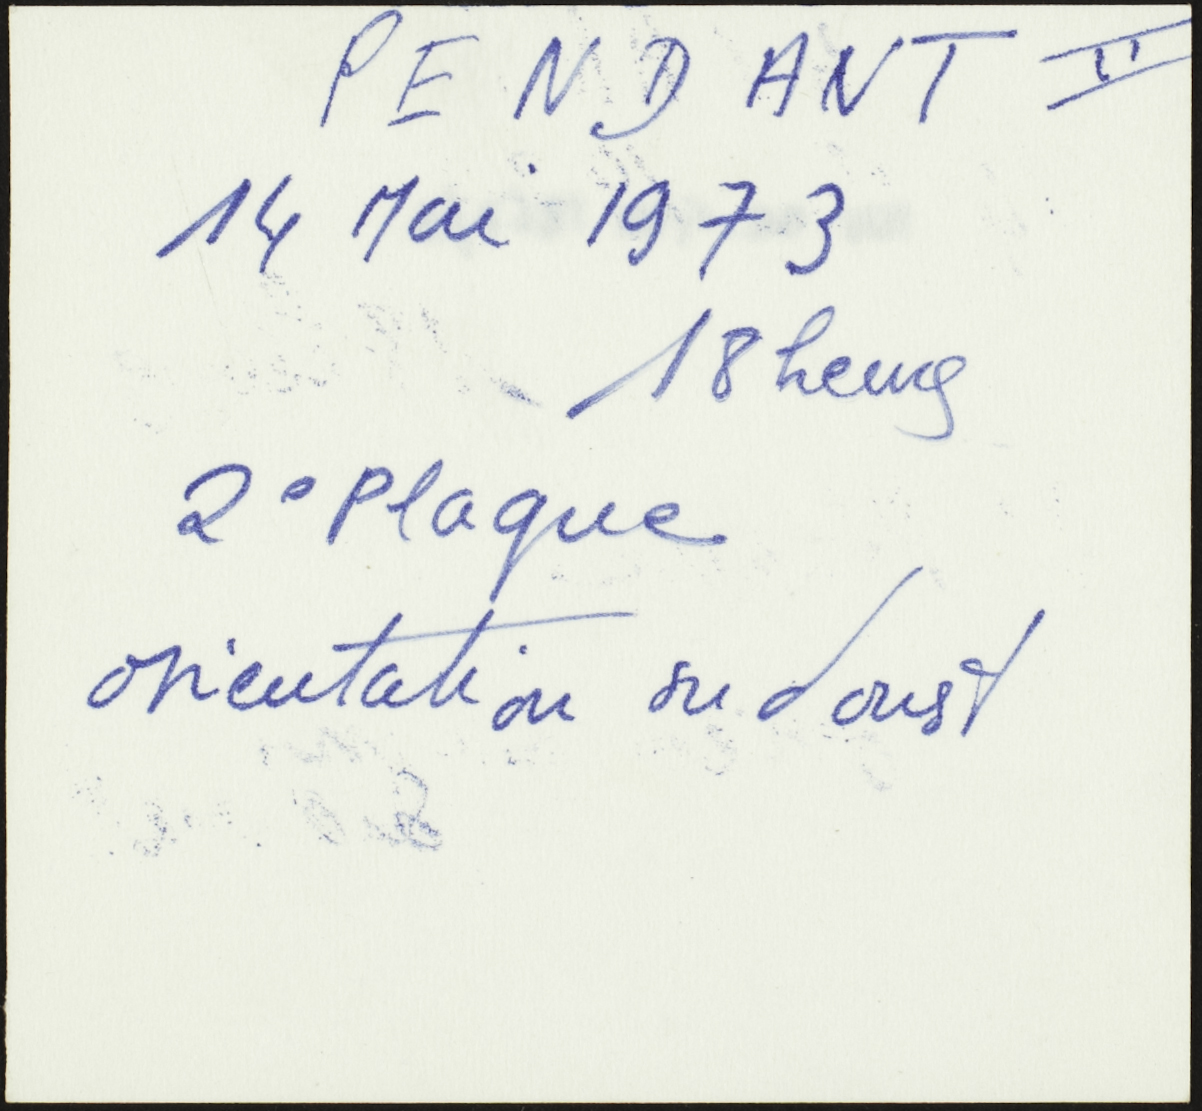 PENDANT II
14 Mai 1973
18 heures
2° Plaque
orientation sud ouest